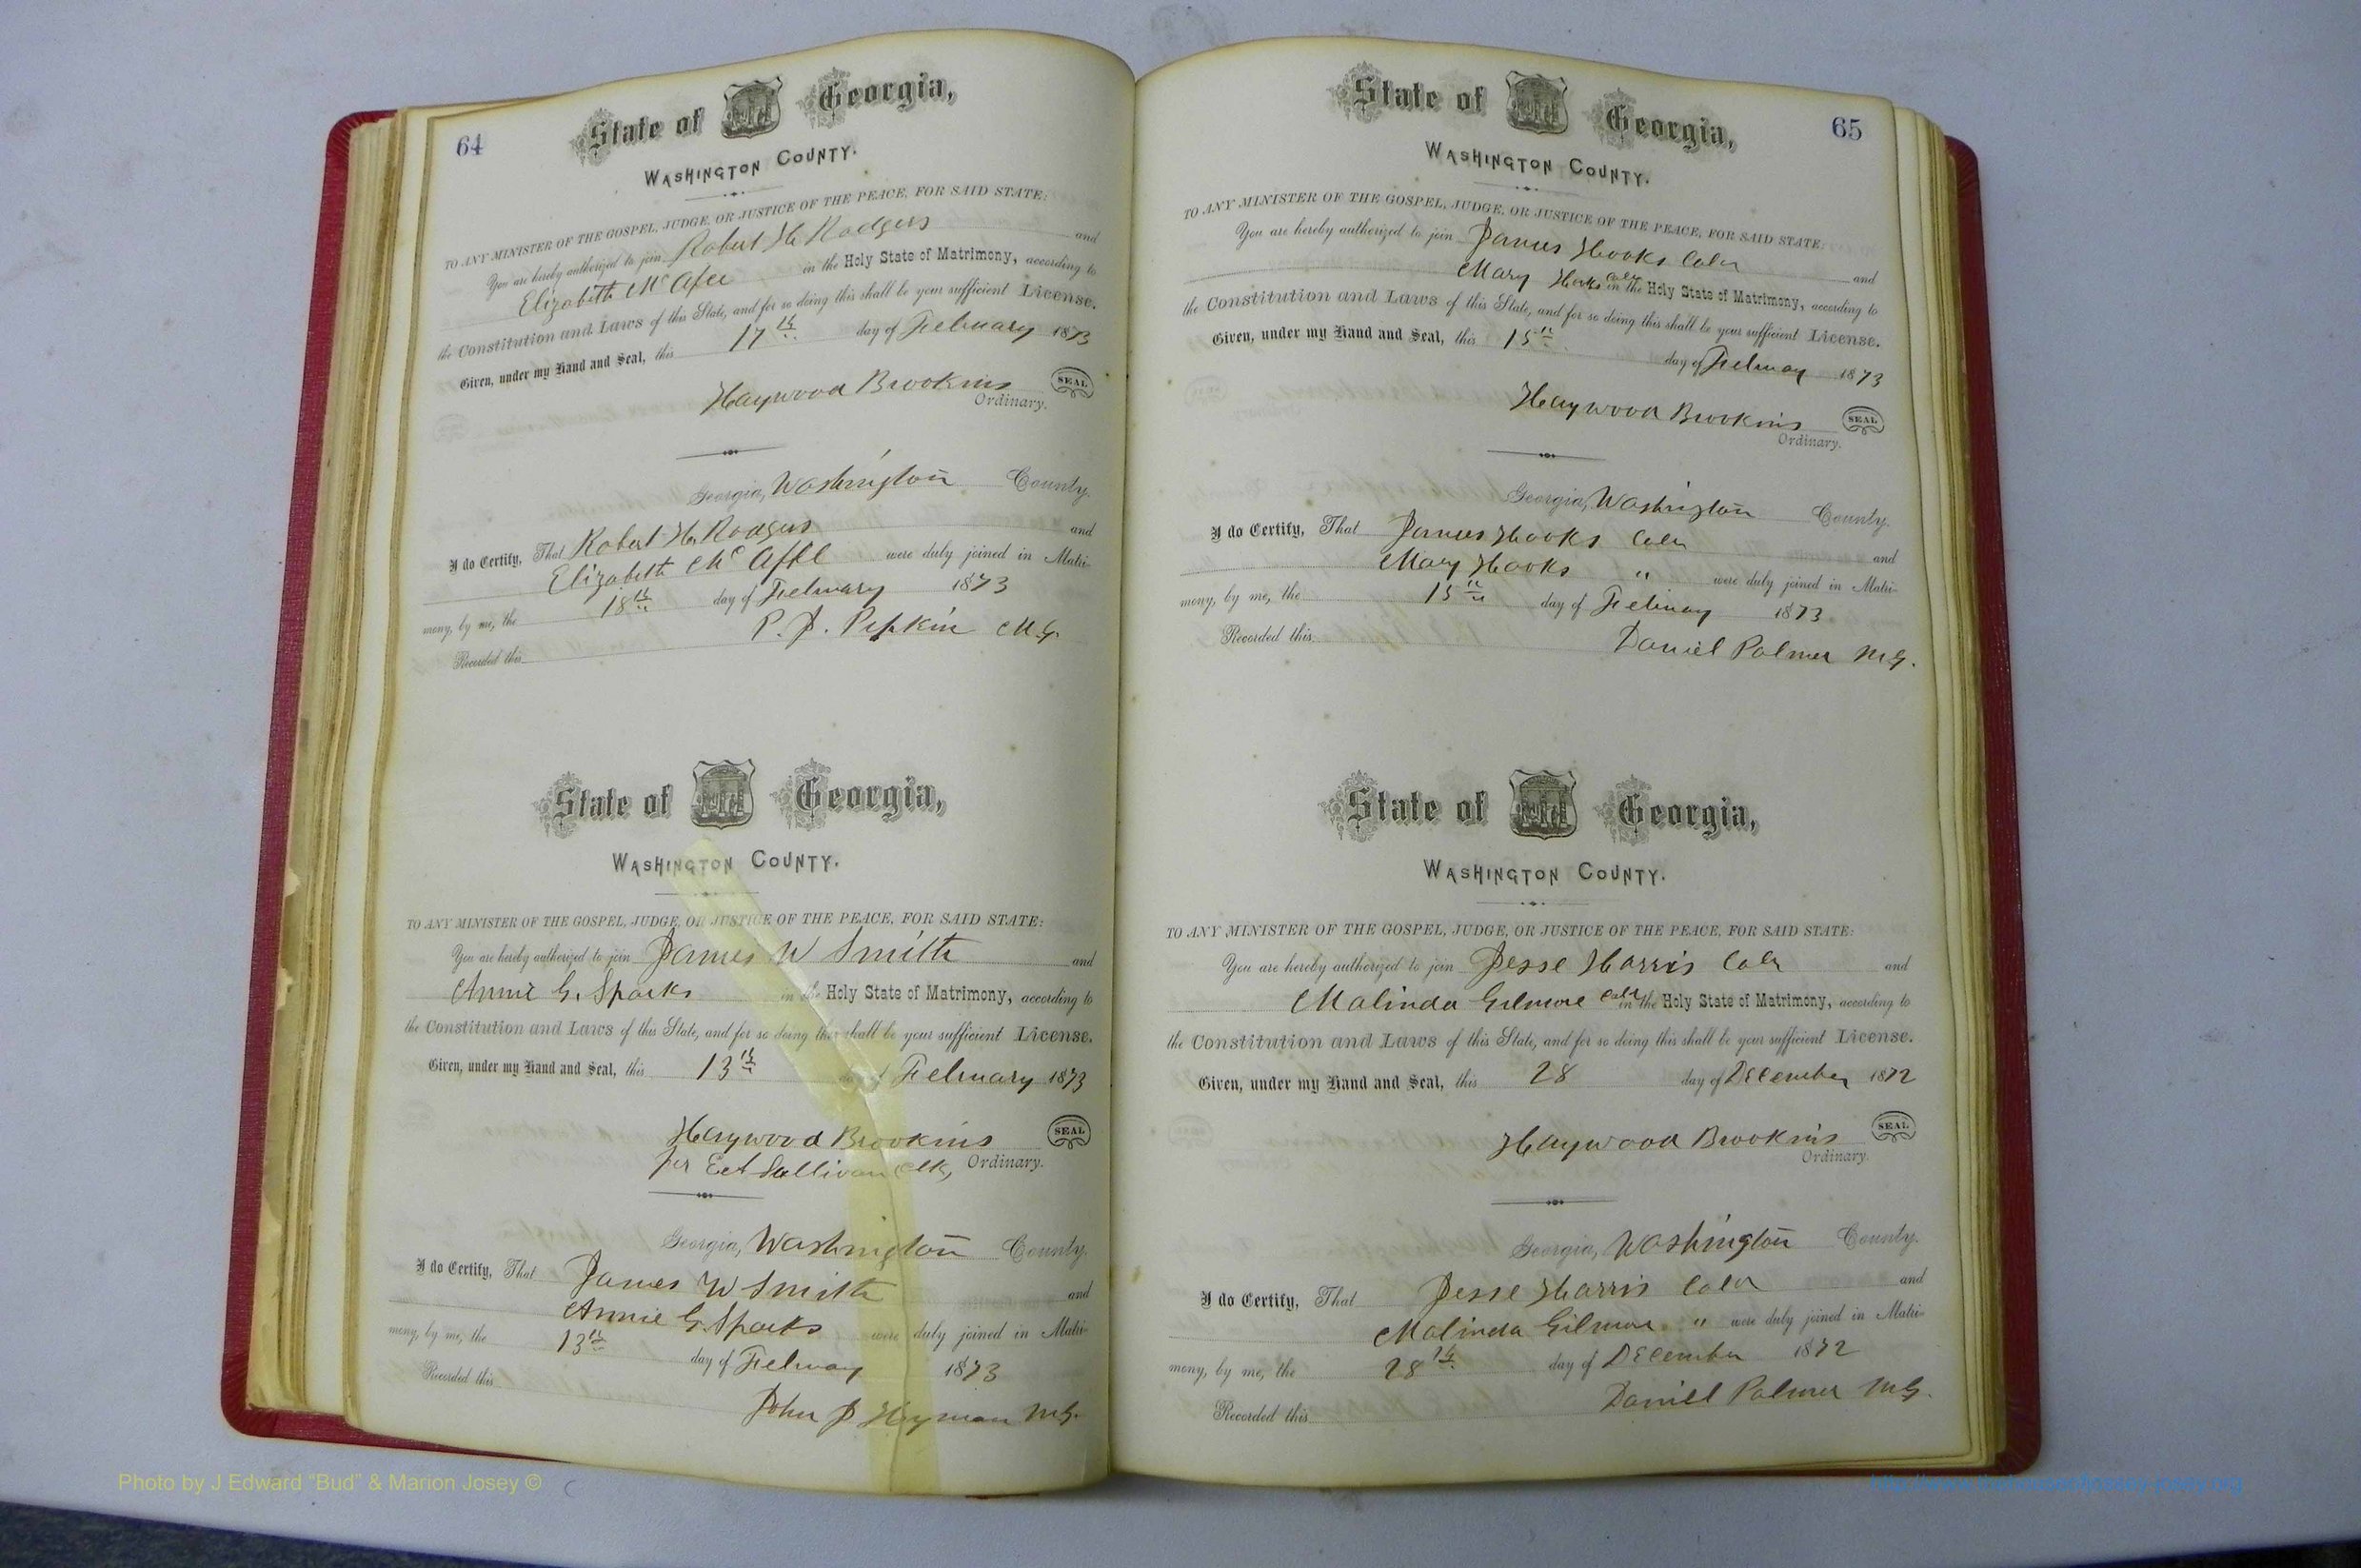 64
State of Georgia,
WASHINGTON COUNTY.
TO ANY MINISTER OF THE GOSPEL, JUDGE, OR JUSTICE OF THE PEACE, FOR SAID STATE:
You are hereby authorized to join Robert H. Rodgers and
Elizabeth McAfee in the Holy State of Matrimony, according to
the Constitution and Laws of this State, and for so doing this shall be your sufficient License.
Given, under my Hand and Seal, this 17th day of February 1873
Haywood Brookins SEAL
Ordinary.
Georgia, Washington County.
I do Certify, That Robert H. Rodgers and
Elizabeth McAffe were duly joined in Matri-
mony, by me, the 18th day of February 1873
Recorded this P. J. Pipkin M.G.
State of Georgia,
WASHINGTON COUNTY.
TO ANY MINISTER OF THE GOSPEL, JUDGE, OR JUSTICE OF THE PEACE, FOR SAID STATE:
You are hereby authorized to join James W Smith and
Annie G. Sparks in the Holy State of Matrimony, according to
the Constitution and Laws of this State, and for so doing this shall be your sufficient License.
Given, under my Hand and Seal, this 13th day of February 1873
Haywood Brookins SEAL
per Sullivan Clk, Ordinary.
Georgia, Washington County.
I do Certify, That James W Smith and
Annie G. Sparks were duly joined in Matri-
mony, by me, the 13th day of Februay 1873
Recorded this
John J Hyman M.G.
65
State of Georgia,
WASHINGTON COUNTY.
TO ANY MINISTER OF THE GOSPEL, JUDGE, OR JUSTICE OF THE PEACE, FOR SAID STATE:
You are hereby authorized to join James Hooks Cold and
Mary Hooks Cold in the Holy State of Matrimony, according to
the Constitution and Laws of this State, and for so doing this shall be your sufficient License.
Given, under my Hand and Seal, this 15th day of Februay 1873
Haywood Brookins SEAL
Ordinary.
Georgia, Washington County.
I do Certify, That James Hooks Cold and
Mary Hooks " were duly joined in Matri-
mony, by me, the 15th day of Februay 1873
Recorded this Daniel Palmer M.G.
State of Georgia,
WASHINGTON COUNTY.
TO ANY MINISTER OF THE GOSPEL, JUDGE, OR JUSTICE OF THE PEACE, FOR SAID STATE:
You are hereby authorized to join Jesse Harris Cold and
Malinda Gilmore Cold in the Holy State of Matrimony, according to
the Constitution and Laws of this State, and for so doing this shall be your sufficient License.
Given, under my Hand and Seal, this 28 day of December 1872
Haywood Brookins SEAL
Ordinary.
Georgia, Washington County.
I do Certify, That Jesse Harris Cold and
Malinda Gilmore " were duly joined in Matri-
mony, by me, the 28th day of December 1872
Recorded this Daniel Palmer M.G.
Photo by J Edward "Bud" & Marion Josey ©